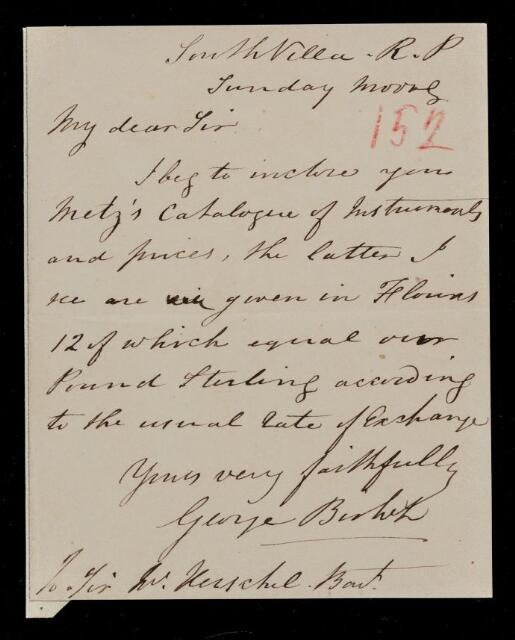 South Villa - R. P
Sunday Morng
152
My dear Sir
I beg to inclose you
Metz's Catalogue of Instruments
and prices, the latter I
see are given in Florins
12 of which equal our
Pound Sterling according
to the usual rate of Exchange
Yours very faithfully
George
To Sir Herschel. Bart.